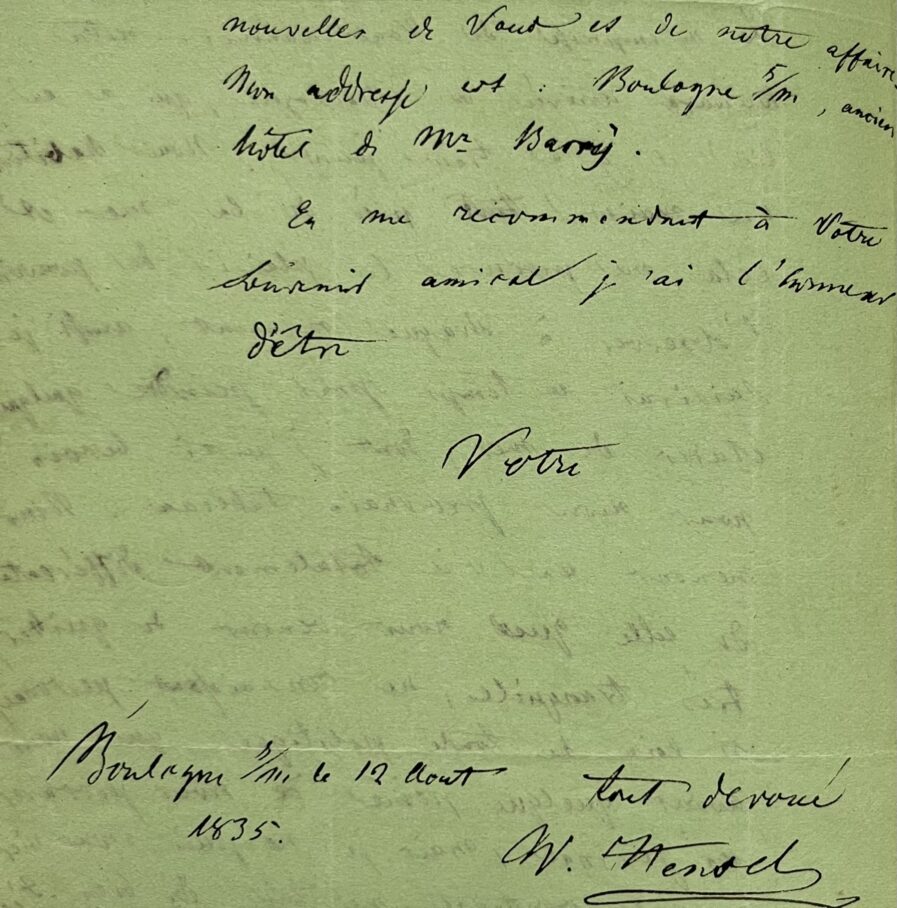 nouvelles de Vous et de notre affaire.
Mon addresse est : Boulogne s/m, ancien
hôtel de Mr Barrÿ.
En me recommendant à Votre
souvenir amical j'ai l'honneur
d'être
Votre
tout devoué
W. Hensel
Boulogne s/m. le 12 Aout
1835.